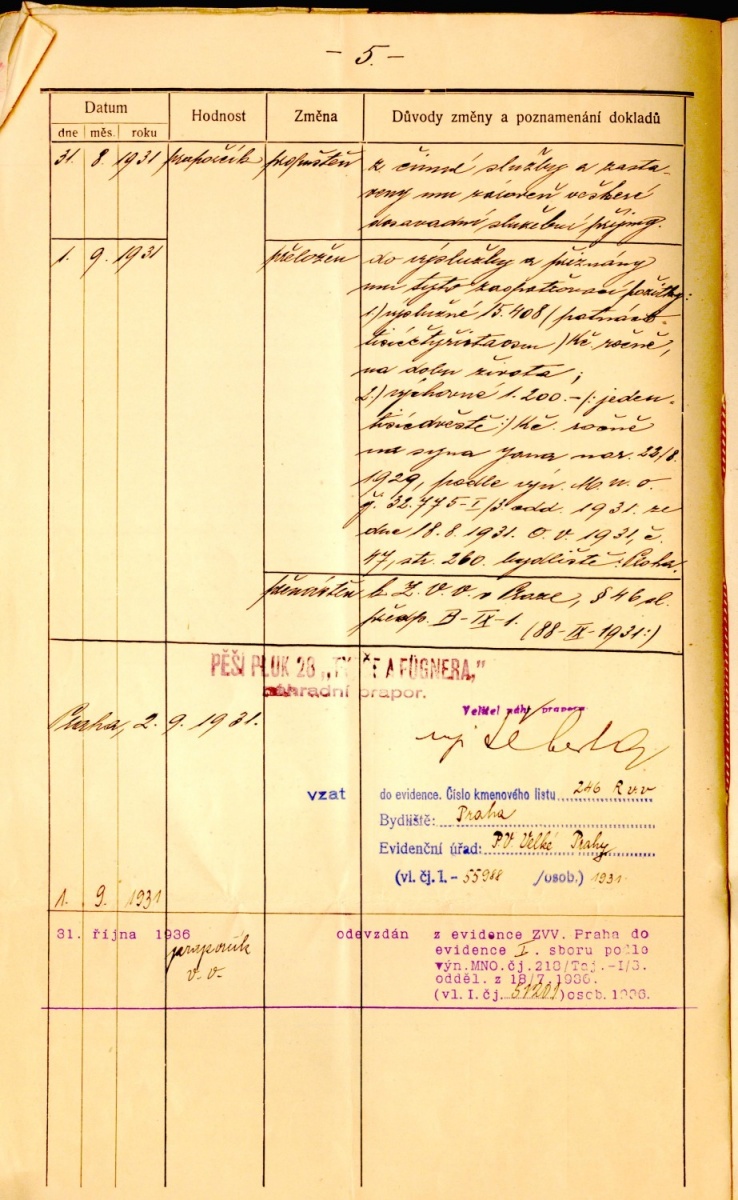 - 5. -
Datum Hodnost Změna Důvody změny a poznamenání dokladů
dne měs. roku
31. 8. 1931 praporčík propuštěn z činné služby a zasta-
veny mu zároveň veškeré
dosavadní služební příjmy.
1. 9. 1931 přeložen do výslužby a přiznány
mu tyto zaopatřovací požitky:
1.) výslužné 15.408 (patnáct-
tisícčtyřistaosm) Kč. ročně,
na dobu života;
2.) výchovné 1.200.- (: jeden-
tisícdvěstě :) Kč. ročně
na syna Jana nar. 23/8.
1929, podle výn. M. n. o.
č. 32.775-I/3. odd. 1931. ze
dne 18.8.1931. O. v. 1931, č.
47, str. 260. bydliště: Praha.
přemístěn k Z. V. V. v Praze, § 46 sl.
předp. B-IX-1.
(88-IX-1931:)
PĚŠÍ PLUK 28 „TY Š F A FÜGNERA,"
náhradní prapor.
Praha, 2. 9. 1931.
Velitel náhr. praporu
vzat do evidence. Číslo kmenového listu 246 R v.v
Bydliště: Praha
Evidenční úřad: P.V. Velké Prahy
(vl. čj. 1.- 55988 /osob.) 1931.
1. 9. 1931
31. října 1936 praporčík v.v. odevzdán z evidence ZVV. Praha do
evidence I. sboru podle
výn.MNO.čj.218/Taj.-I/3.
odděl. z 18/7.1936.
(vl.I.čj. 51201) osob.1936.